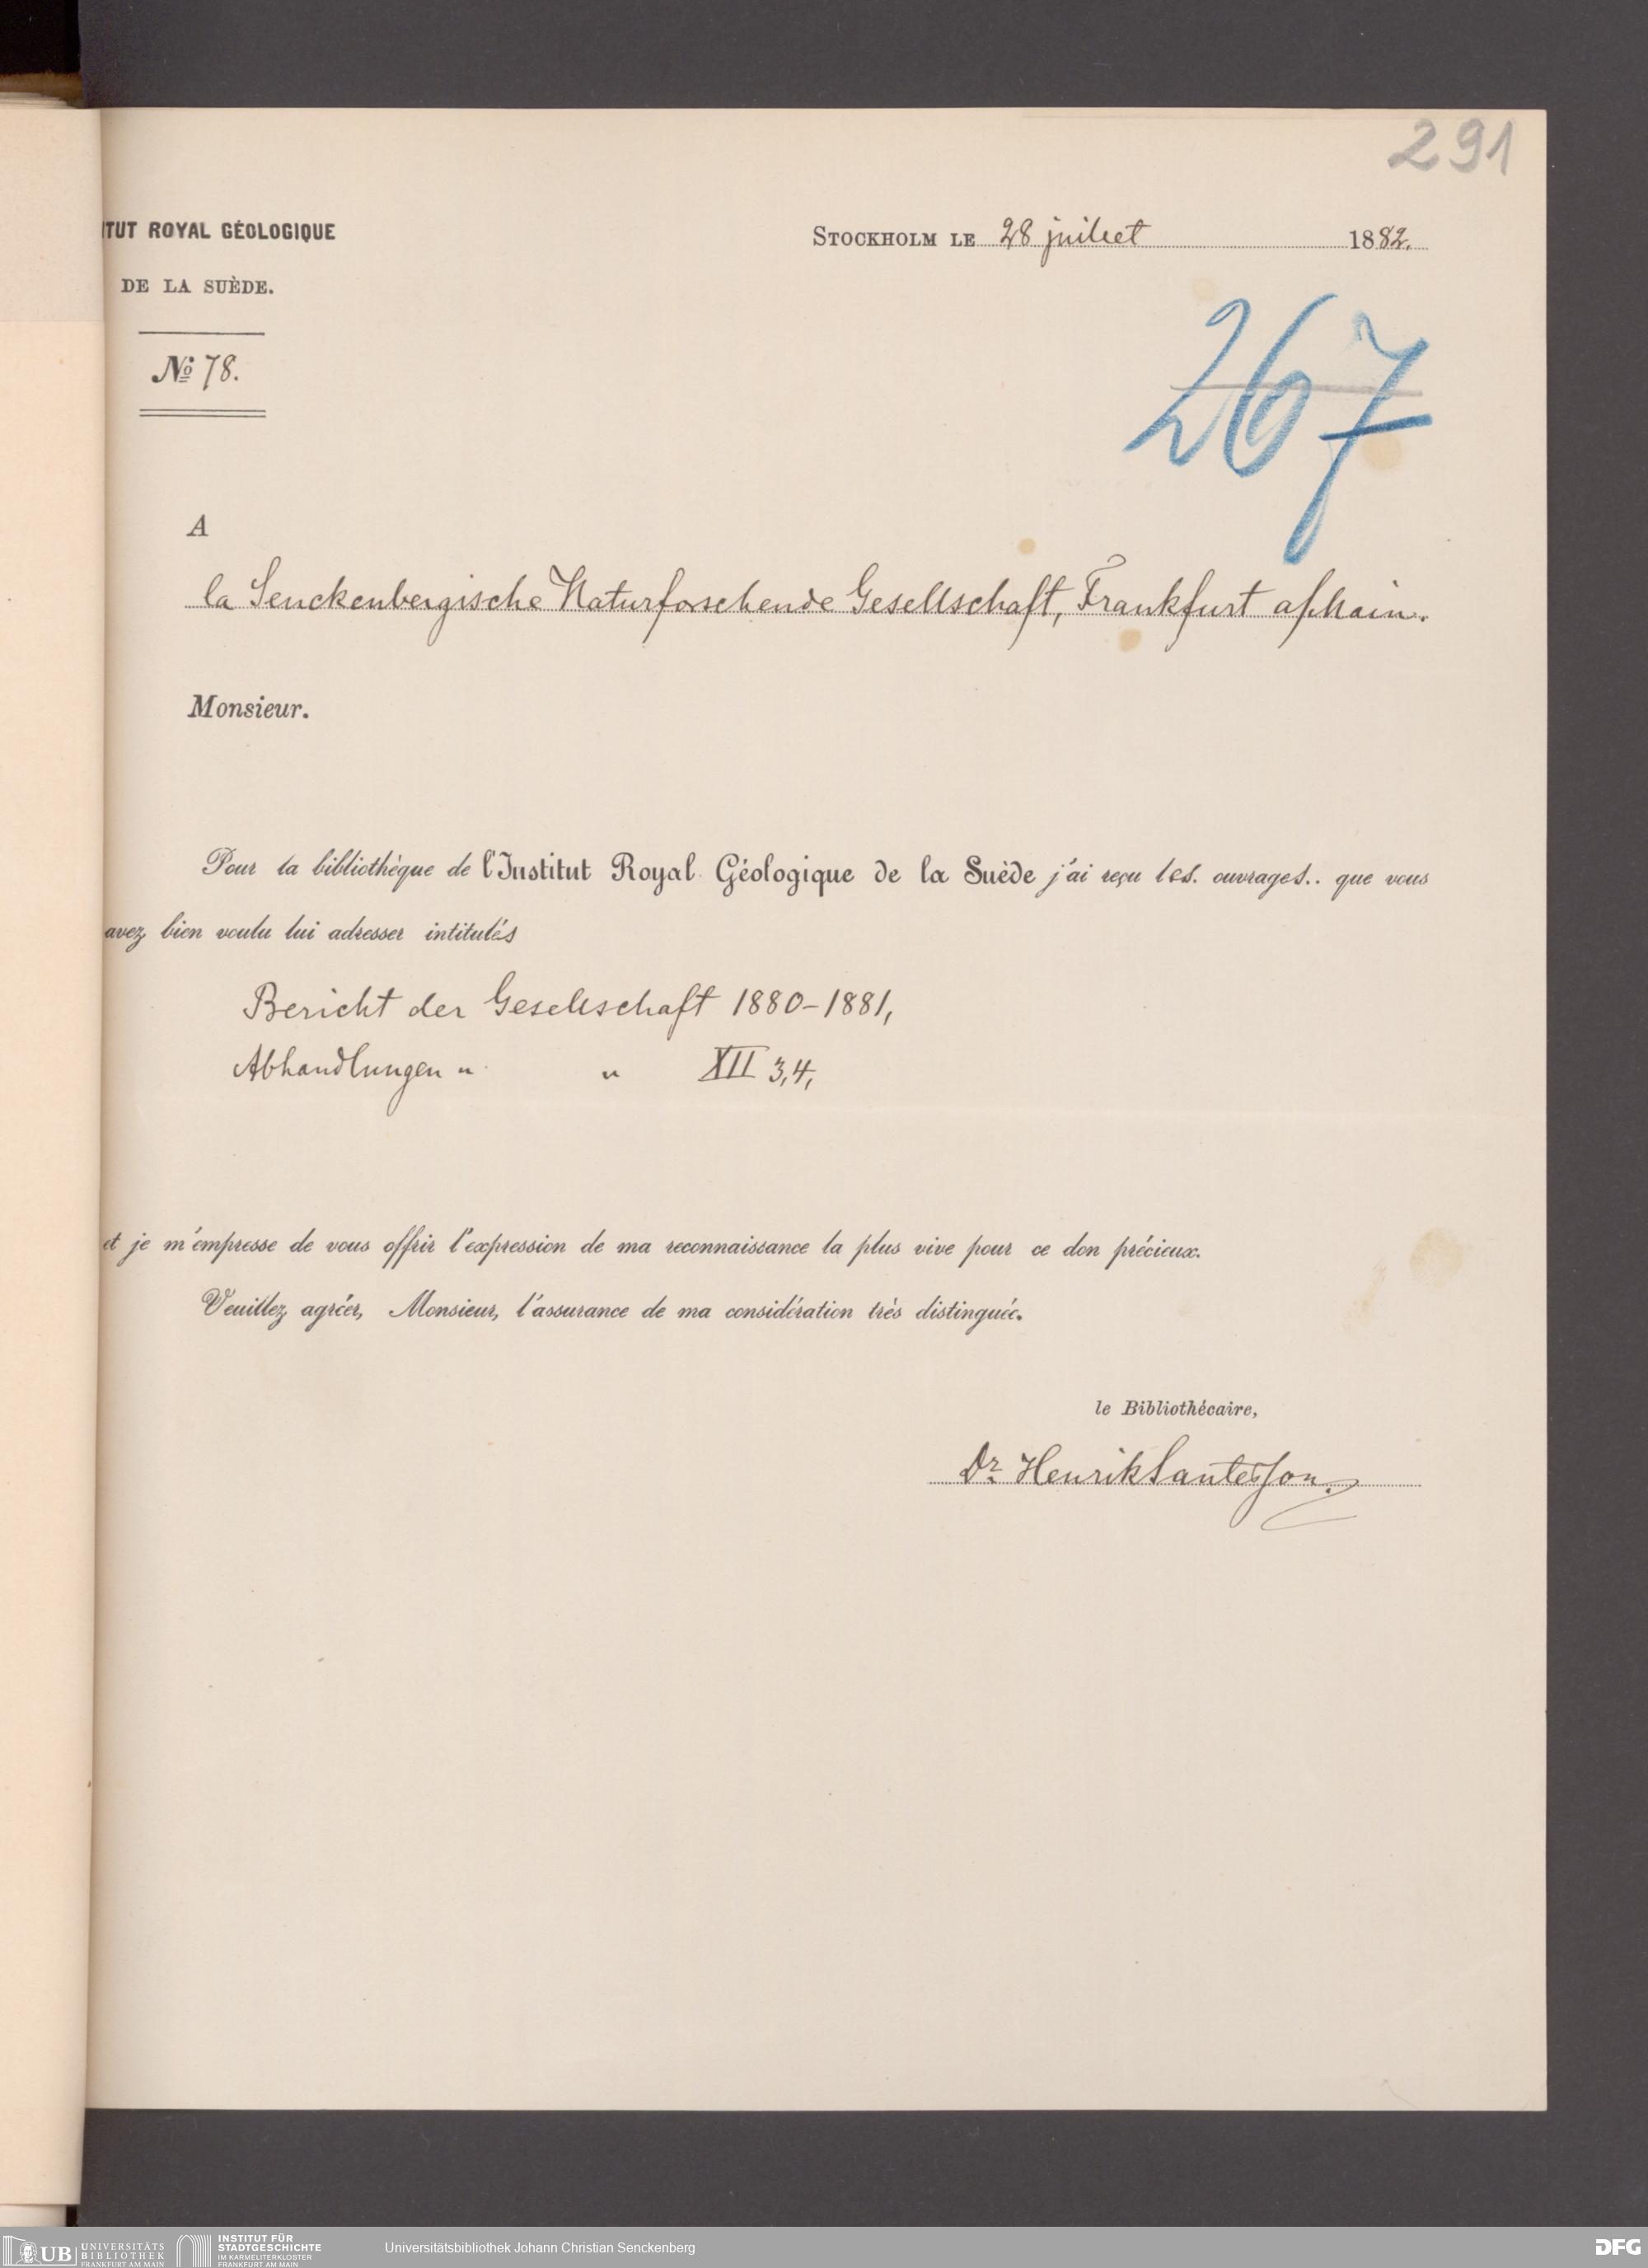 291
ITUT ROYAL GÉOLOGIQUE
DE LA SUÈDE.
STOCKHOLM LE 28 juillet 1882.
№ 78.
267
A
la Senckenbergische Naturforschende Gesellschaft, Frankfurt a/Main.
Monsieur.
Pour la bibliothèque de l'Institut Royal Géologique de la Suède j'ai reçu les. ouvrages.. que vous
avez bien voulu lui adresser intitulés
Bericht der Gesellschaft 1880-1881,
Abhandlungen „ „ XII 3,4,
et je m'empresse de vous offrir l'expression de ma reconnaissance la plus vive pour ce don précieux.
Veuillez agréer, Monsieur, l'assurance de ma considération très distinguée.
le Bibliothécaire,
Dr. Henrik Santesson.
UB UNIVERSITÄTS
BIBLIOTHEK
FRANKFURT AM MAIN
INSTITUT FÜR
STADTGESCHICHTE
IM KARMELITERKLOSTER
FRANKFURT AM MAIN
Universitätsbibliothek Johann Christian Senckenberg
DFG